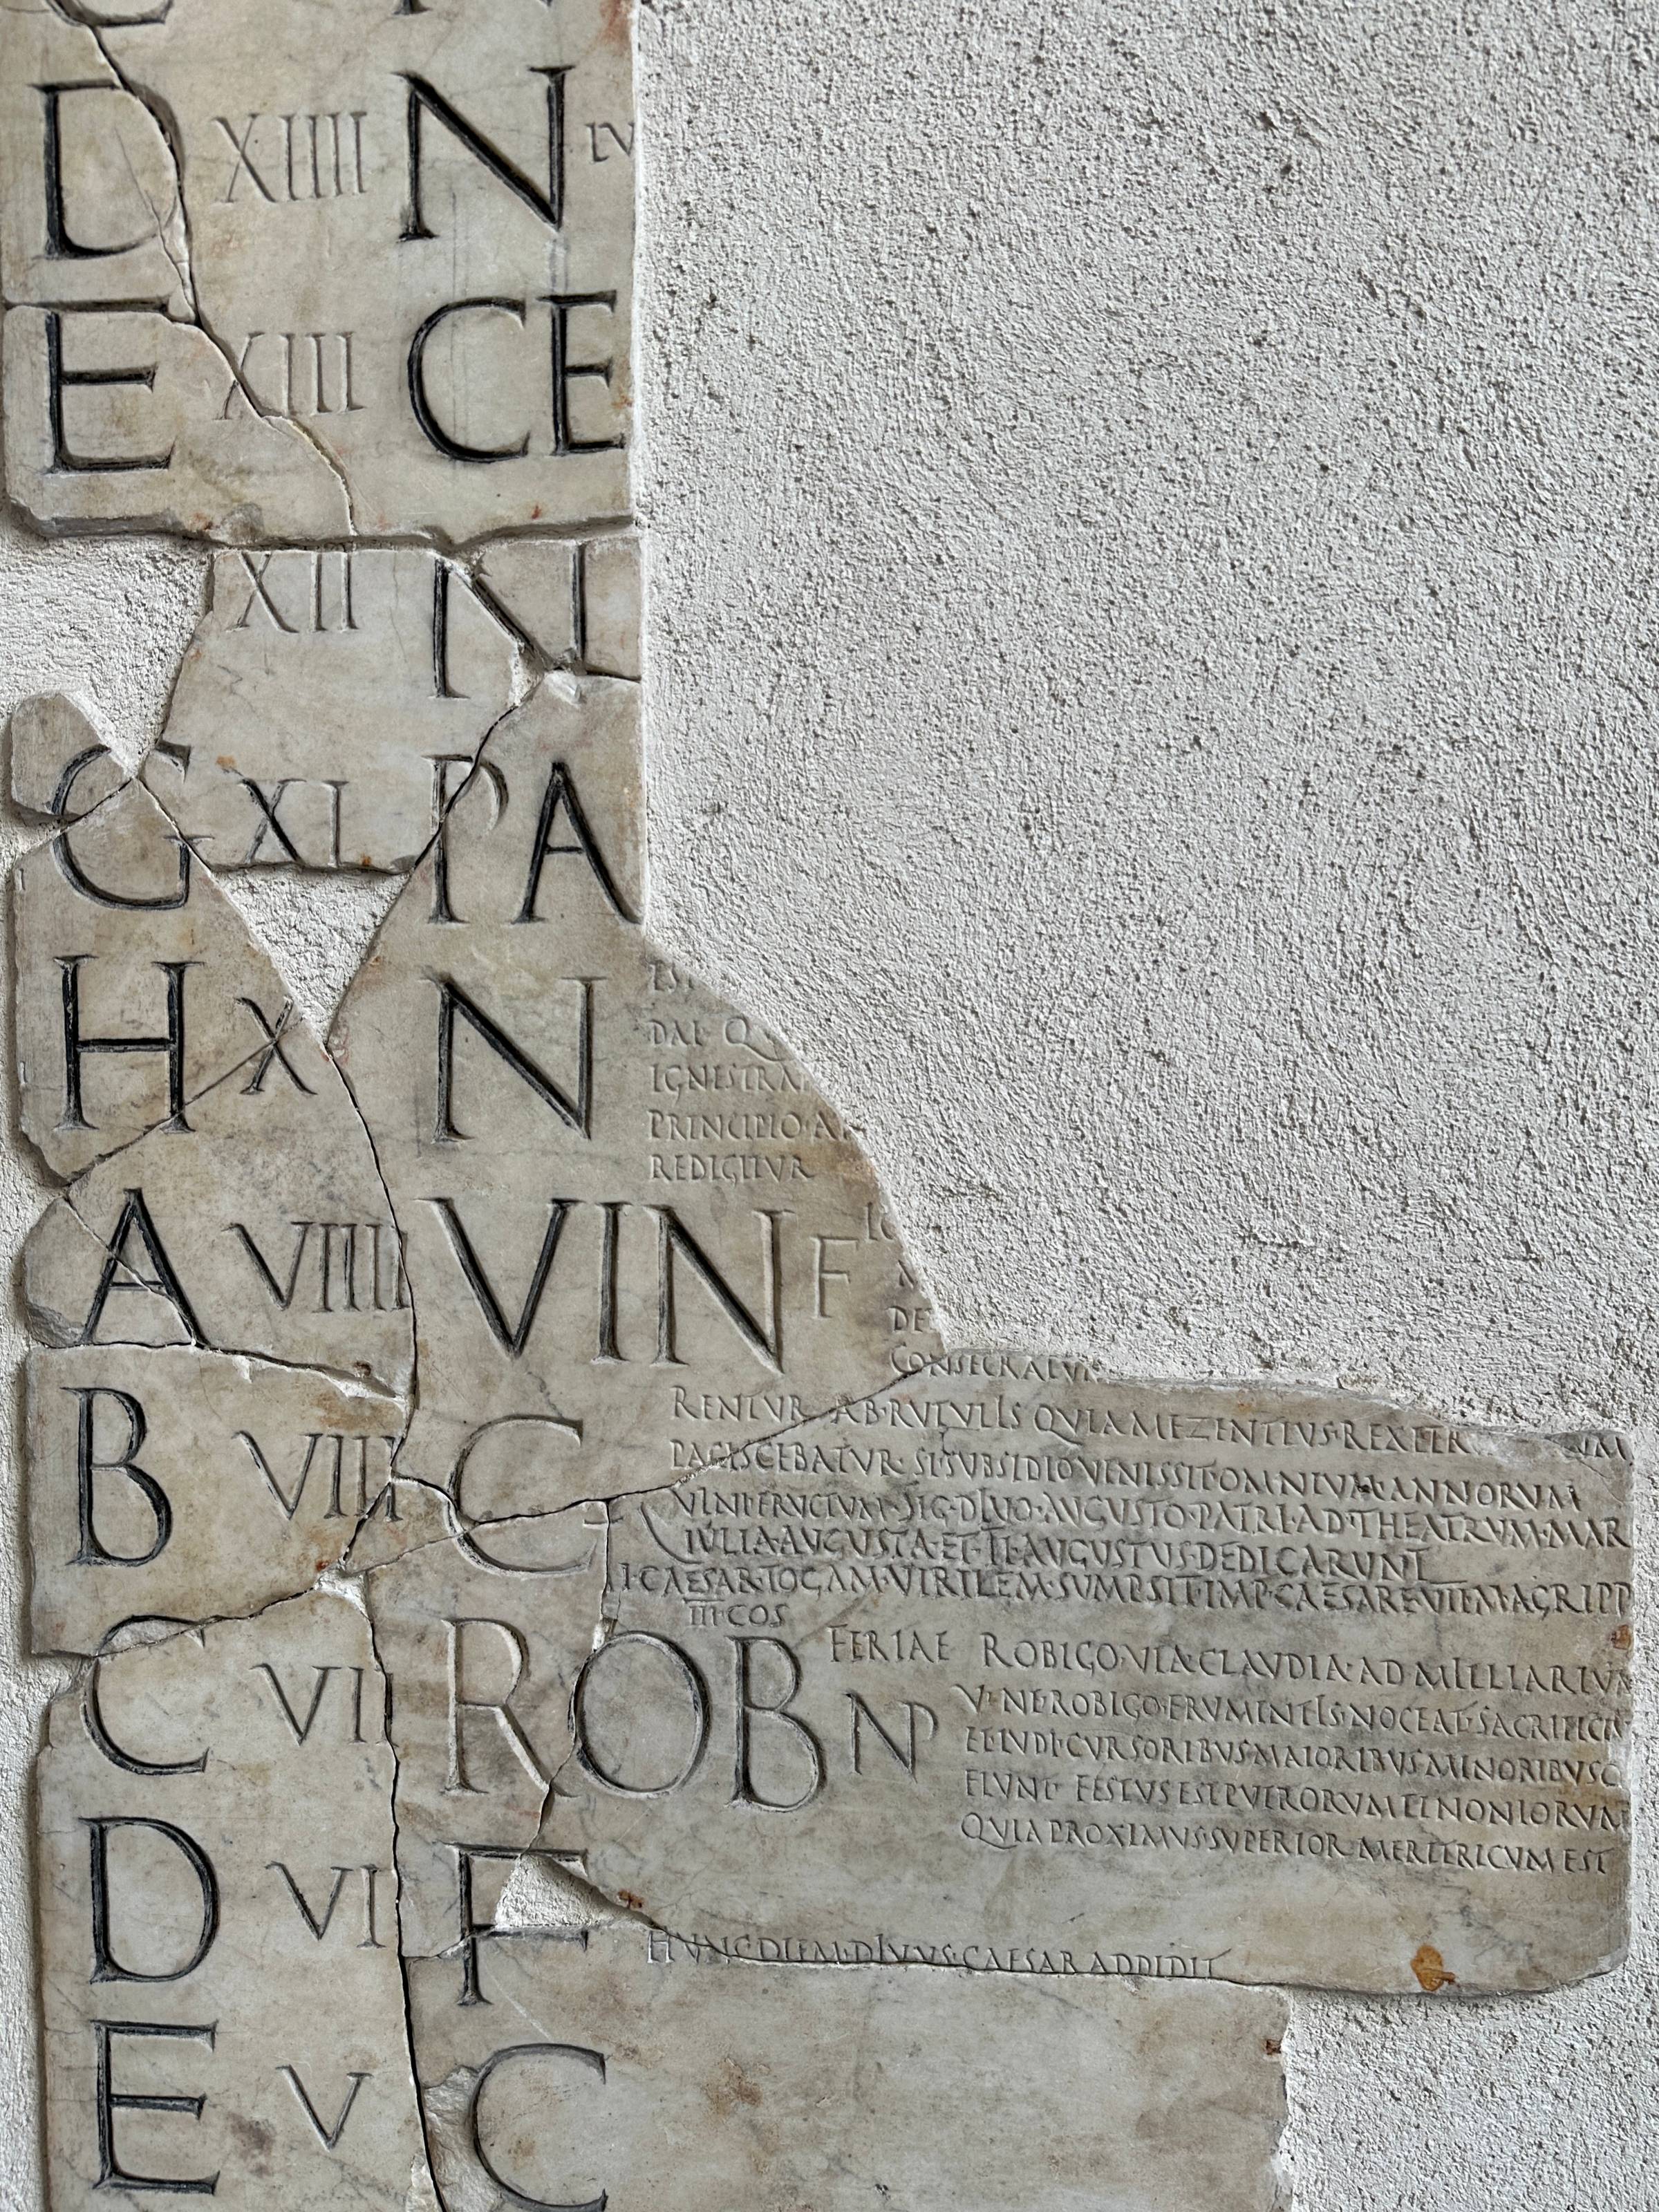 D XIIII N LV
E XIII CE
XII N
G XI PA
H X N
DAT Q
IGNESTRA
PRINCIPIO A
REDIGITVR
A VIIII VIN F
DE
CONSECRATVR
B VIII C
RENTVR AB RVTVLIS QVIA MEZENTIVS REX
PACISCEBATVR SI SVBSIDIO VENISSET OMNIVM ANNORVM
VINI FRVCTVM SIG DIVO AVGVSTO PATRI AD THEATRVM MAR
IVLIA AVGVSTA ET TI AVGVSTVS DEDICARVNT
TI CAESAR TOGAM VIRILEM SVMPSIT IMP CAESARE VII M AGRIPP
III COS
C VII ROB NP
FERIAE ROBIGO VIA CLAVDIA AD MILLIARIVM
V NE ROBIGO FRVMENTIS NOCEAT SACRIFICI
ET LVDI CVRSORIBVS MAIORIBVS MINORIBVSQ
FIVNT FESTVS EST PVERORVM LENONIORVM
QVIA PROXIMVS SVPERIOR MERETRICVM EST
D VI F
HVNC DIEM DIVVS CAESAR ADDIDIT
E V C